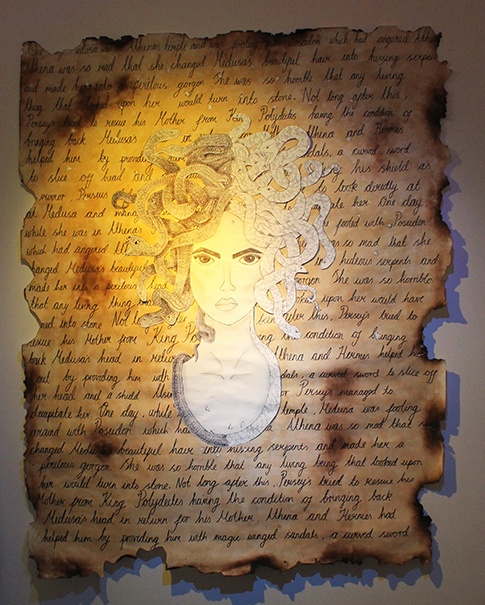 in Athena's temple and was fooling which had angered Athena
Athena was so mad that she changed Medusa's beautiful hair into hissing serpents
and made her into a perilous gorgon She was so horrible that any living
thing that upon her would turn into stone. Not long after this,
Perseys tried to rescue his Mother from King Polydictes having the condition of
bringing back Medusas in Athina and Hermes
helped him by providing sandals, a curved sword
to slice off head and his shield as
a mirror Perseus to look directly at
at Medusa and mana One day
while she was in Athena fooled with Poseidon
which had angered so mad that she
changed Medusas beautiful in hideous serpents and
made her into a perilous gorgon She was so horrible
that any living thing upon her would have
into stone. Not lo after this, Perseys tried to
rescue his Mother from King Po the condition of bringing
back Medusas head in return Athina and Hermes helped
out by providing him with sandals, a curved sword to slice off
her head and a shield. or Perseys managed to
decapitate her. One day, while temple, Medusa was fooling
around with Poseidon which ha Athena was so mad that
changed Medusas beautiful hair into hissing serpents and made her a
perilous gorgon. She was so horrible that any living being that looked upon
her would turn into stone. Not long after this, Perseys tried to rescue his
Mother from King Polydictes having the condition of bringing back
Medusa's head in return for his Mother Athina and Hermes had
helped him by providing him with magic winged sandals, a curved sword